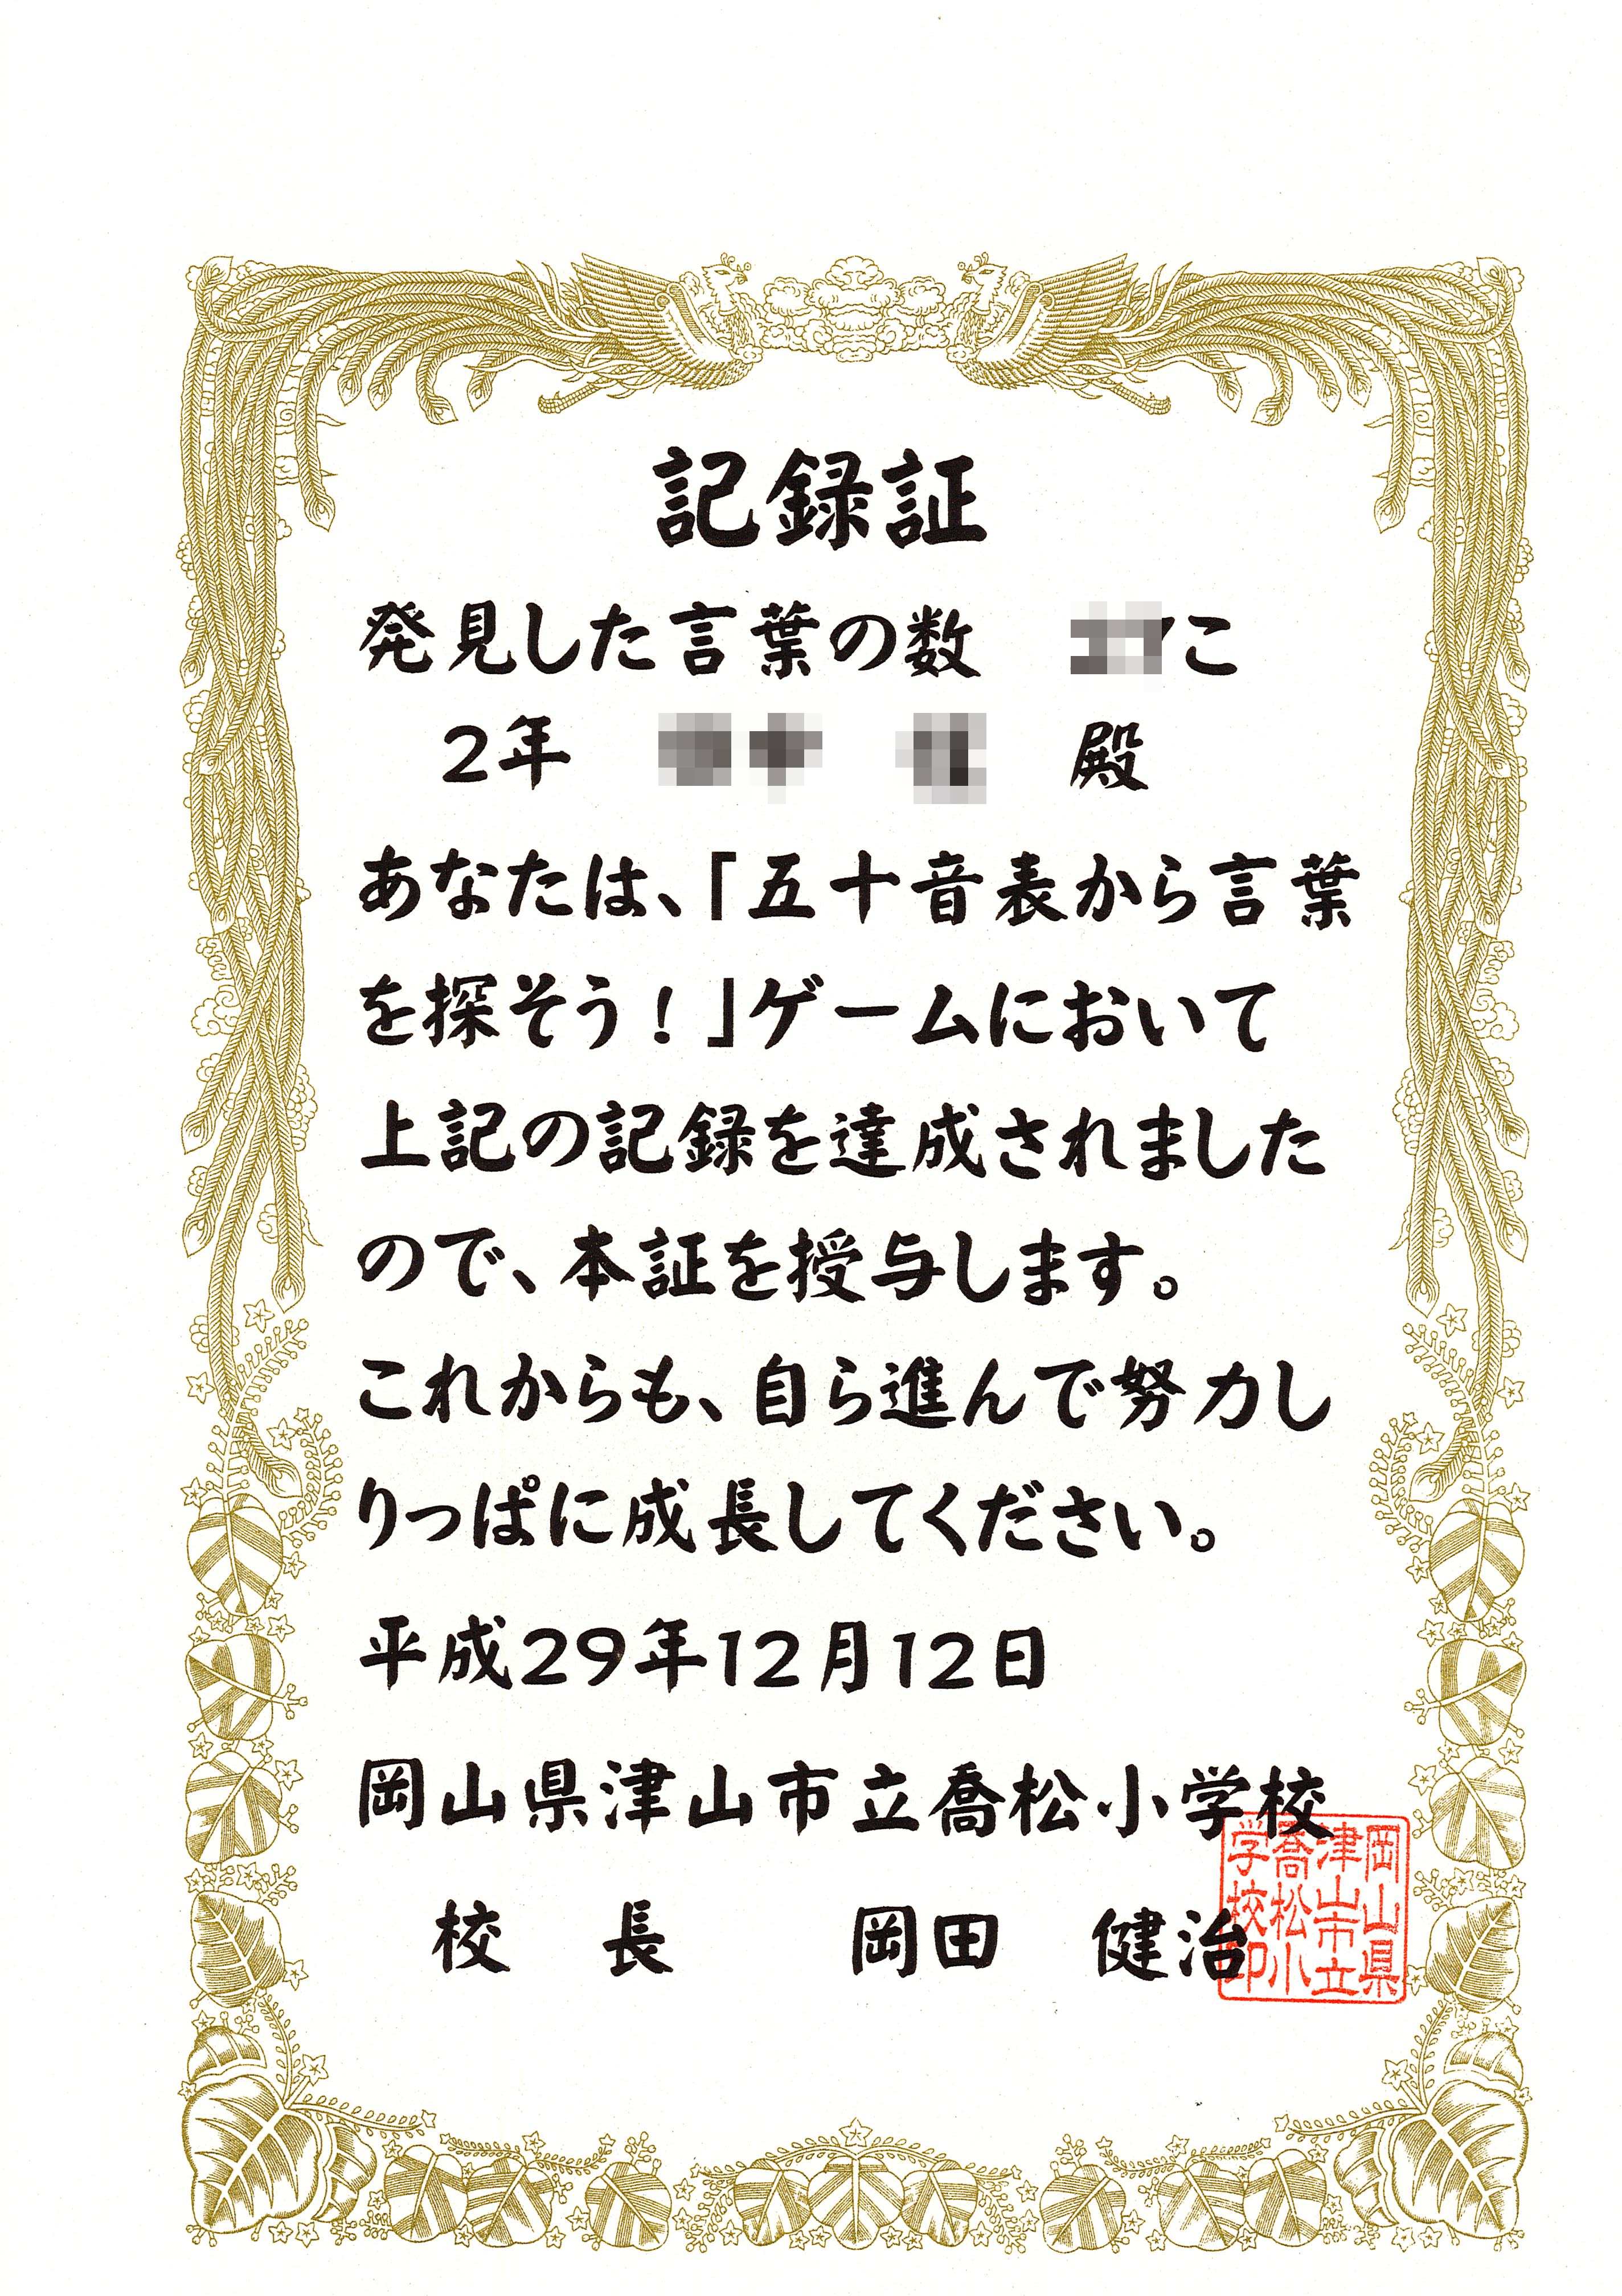 記録証
発見した言葉の数　こ
2年　殿
あなたは、「五十音表から言葉
を探そう！」ゲームにおいて
上記の記録を達成されました
ので、本証を授与します。
これからも、自ら進んで努力し
りっぱに成長してください。
平成29年12月12日
岡山県津山市立喬松小学校
校　長　　岡田　健治
岡山県
津山市立
喬松小
学校印